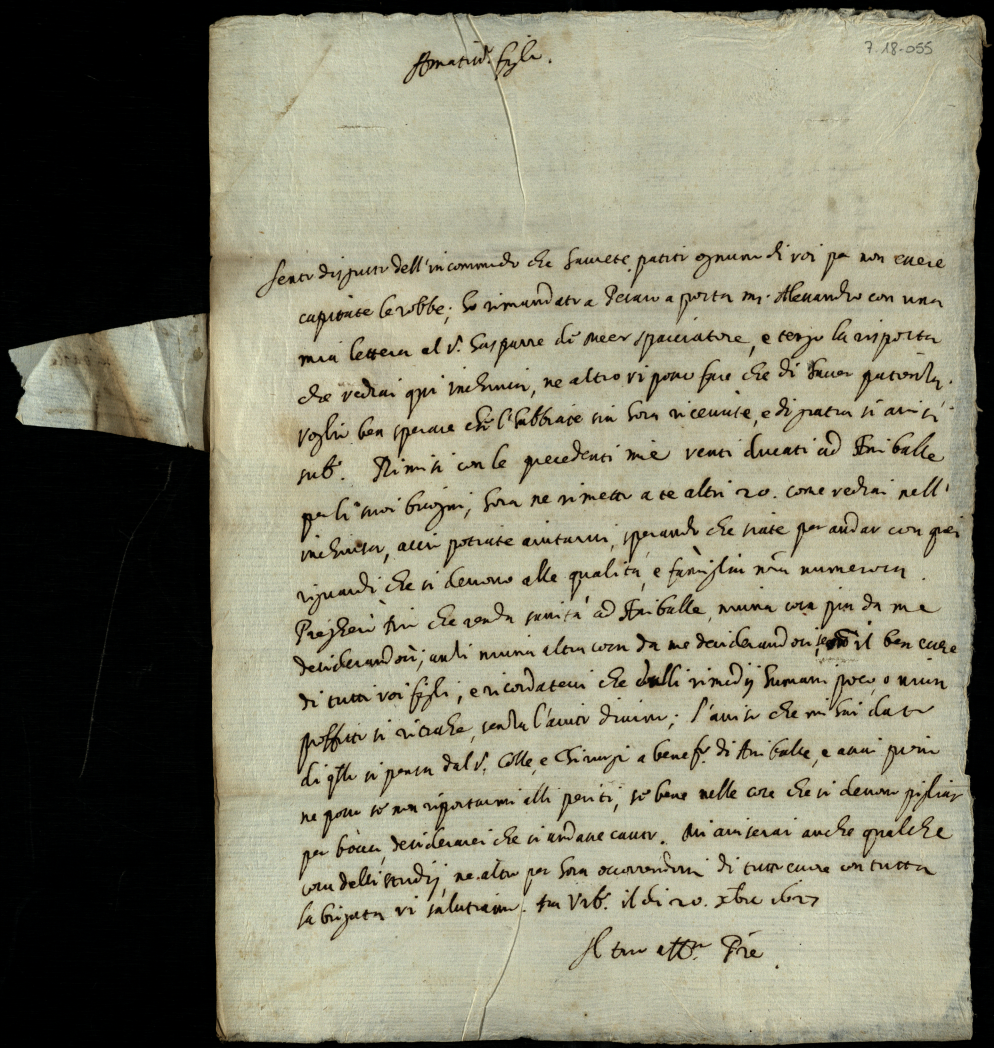 7.18-055
Amatiss.i figli.
Sento disgusto dell'incommodo che havete patito ognuno di voi per non essere
capitate le robbe; ho rimandato a Pesaro a posta m.r Alessandro con una
mia lettera al S.r Gasparre de Meer spacciatore, e tengo la risposta
che vedrai qui inchiusa, ne altro vi posso fare che di haver patienza.
voglio ben sperare che l'habbiate sin hora ricevute, e di gratia si avisi
sub.o Rimisi con le precedenti mie venti ducati ad Aniballe
per li suoi bisogni, hora ne rimetto a te altri 20. come vedrai nell'
inchiusa, acciò potiate aiutarvi, sperando che siate per andar con quei
riguardi che si devono alle qualità, e famiglia mia numerosa.
Pregherò Dio che renda sanità ad Aniballe, niuna cosa più da me
desiderandosi; anzi niuna altra cosa da me desiderandosi, il ben essere
di tutti voi figli, e ricordatevi che dalli rimedij humani poco, o niun
proffitto si ritrahe, senza l'aiuto divino; l'aviso che mi hai dato
di q.llo si pensa dal S.r Colle, e Chirurgi a benef.o di Aniballe, e assai
ne posso se non riportarmi alli periti, se bene nelle cose che si devono pigliar
per bocca, desiderarei che si andasse cauto. Mi aviserai anche qualche
cosa delli studij, ne altro per hora occorrendomi di tutto core con tutta
la brigata vi salutiamo. Da Urb.o il di 20. xbre 1627
Il tuo aff.mo Pre